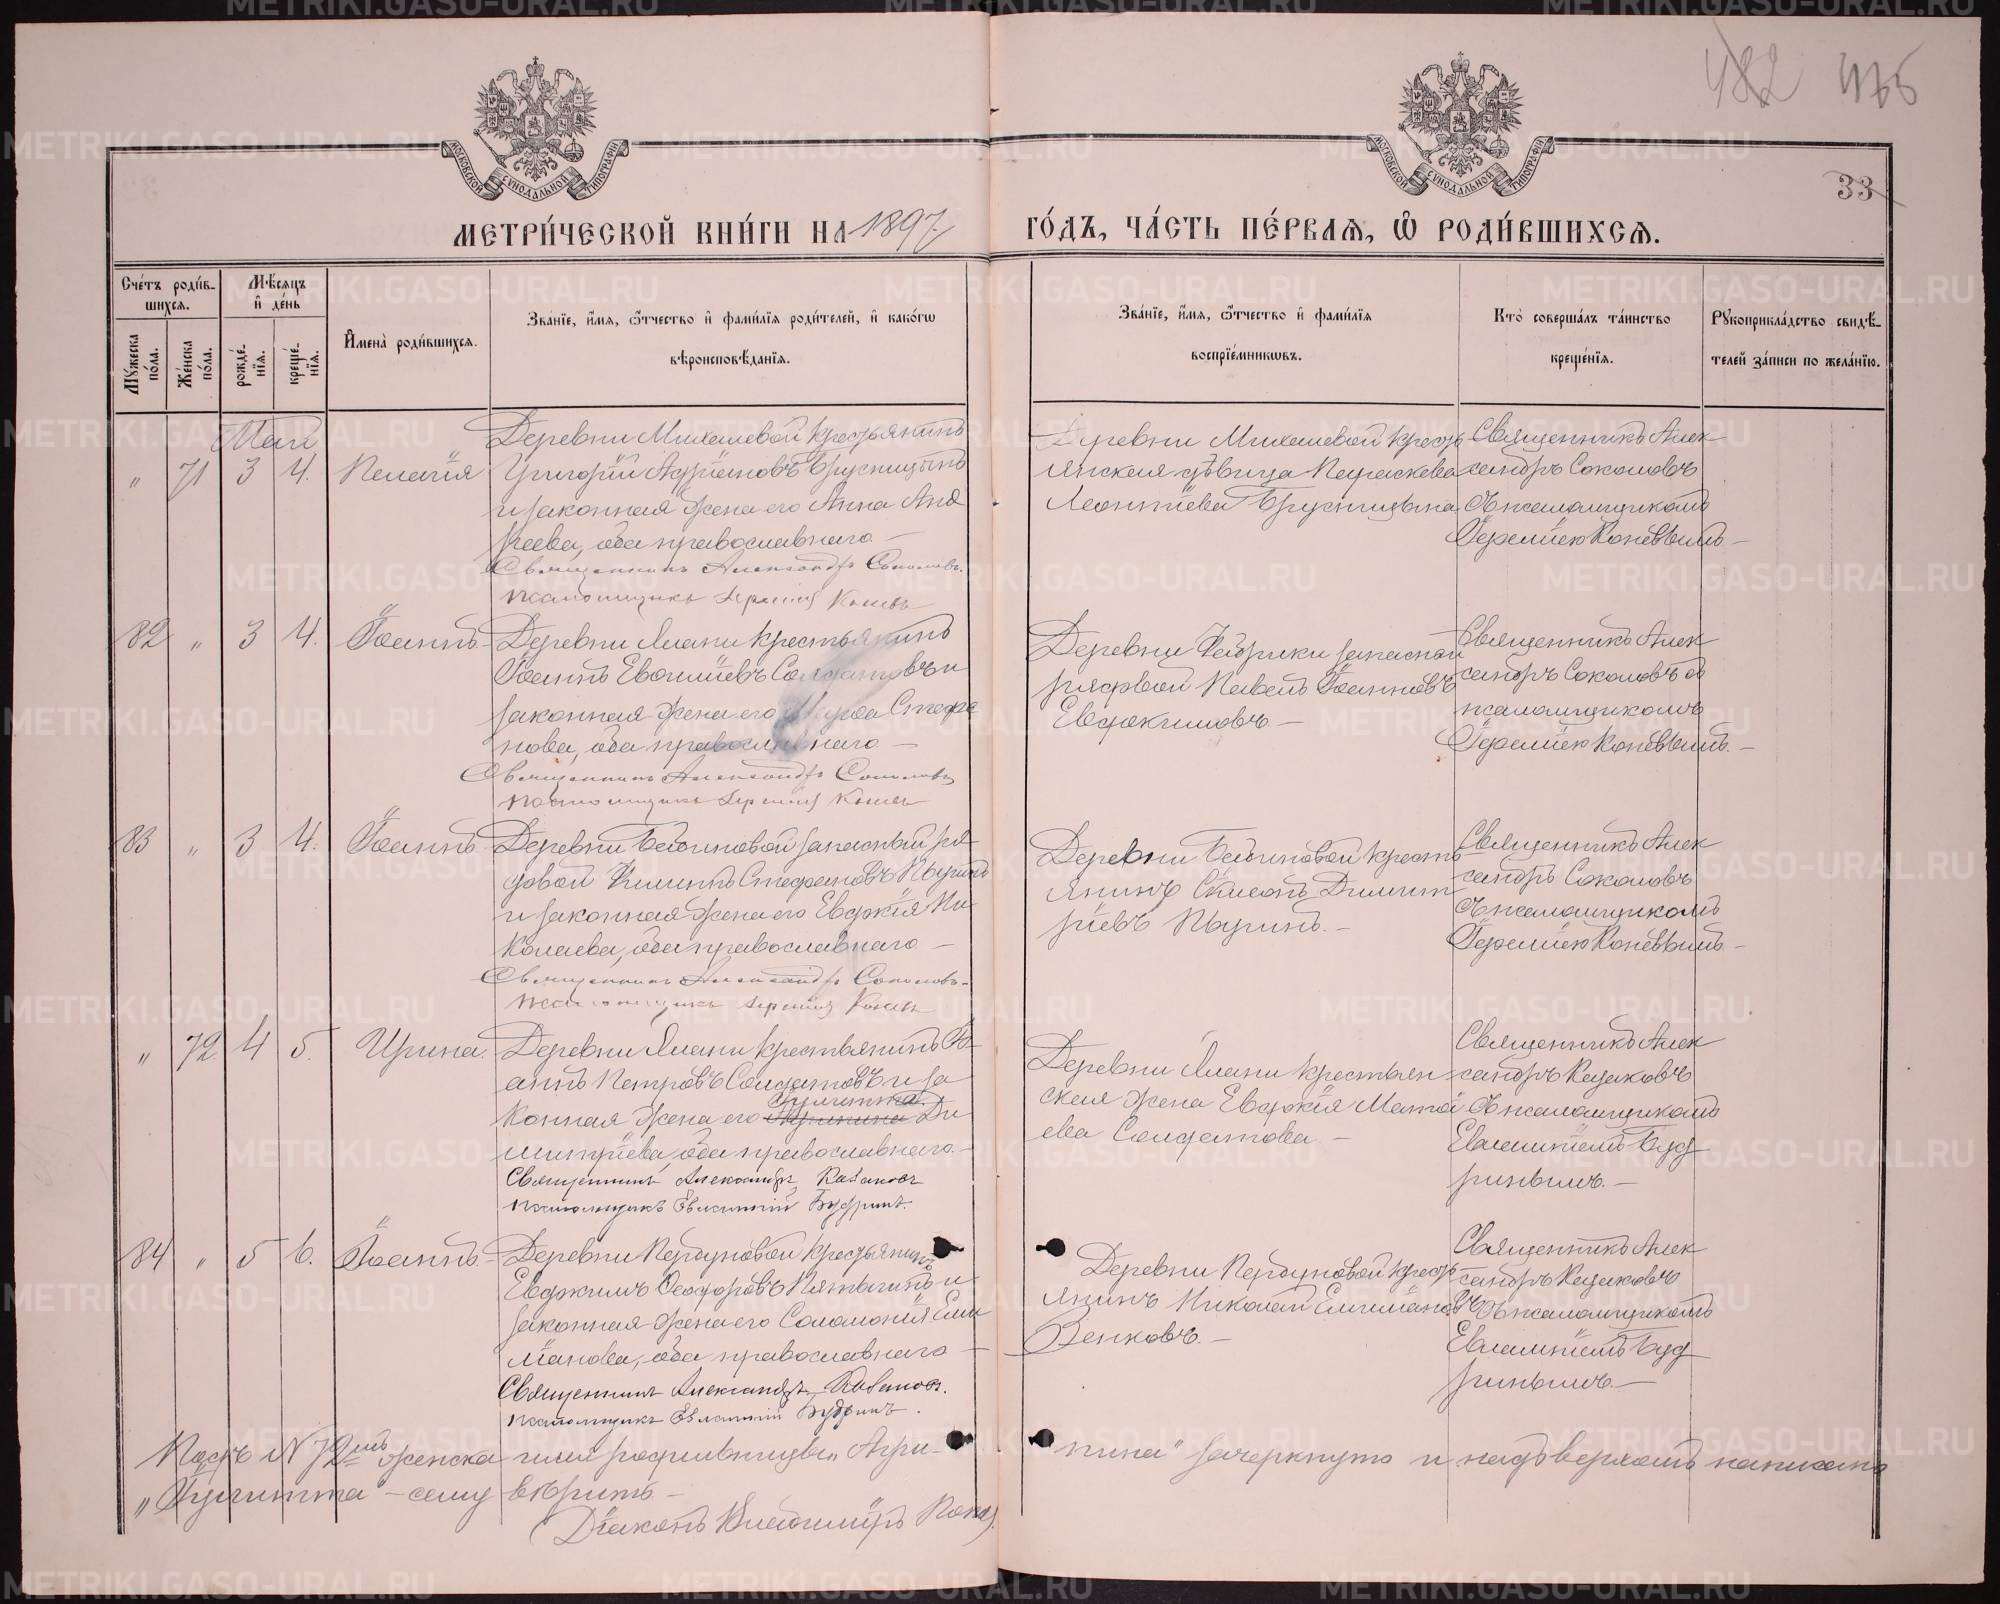 482 475
33
МОСКОВСКОЙ СУНОДАЛЬНОЙ ТИПОГРАФІИ
МОСКОВСКОЙ СУНОДАЛЬНОЙ ТИПОГРАФІИ
МЕТРИ́ЧЕСКОЙ КНИ́ГИ НА 1897
ГО́ДЪ, ЧА́СТЬ ПЕ́РВАЯ, Ѽ РОДИ́ВШИХСЯ.
Сче́тъ роди́в-шихся.
Мꙋ́жеска по́ла.
Же́нска по́ла.
Мѣ́сяцъ и҆ де́нь
рожде́-нїя.
креще́-нїя.
И҆мена̀ роди́вшихся.
Зва́нїе, и҆́мя, ѻ҆́тчество и҆ фами́лїя роди́телей, и҆ како́гѡ вѣроисповѣ́данїя.
Зва́нїе, и҆́мя, ѻ҆́тчество и҆ фами́лїя воспрїе́мникѡвъ.
Кто̀ соверша́лъ та́инство креще́нїя.
Рꙋкоприкла́дство свидѣ́-телей за́писи по жела́нїю.
Май
" 71 3 4. Пелагія
Деревни Михалевой крестьянинъ
Григорій Адріановъ Брусницынъ
и законная жена его Анна Анд
реева, оба православнаго. —
Священникъ Александръ Соколовъ.
Псаломщикъ Іеремія Коневъ
Деревни Михалевой кресть
янская дѣвица Параскева
Леонтіева Брусницына
Священникъ Алек
сандръ Соколовъ
съ псаломщикомъ
Іереміею Коневымъ. —
82 " 3 4. Іоаннъ.
Деревни Ялани крестьянинъ
Іоаннъ Солдатовъ и
законная жена его Стефа
нова, оба православнаго. —
Священникъ Александръ Соколовъ
Псаломщикъ Іеремія Коневъ
Деревни Фабрики запасной
рядовой Павелъ Іоанновъ
Евдокимовъ. —
Священникъ Алек
сандръ Соколовъ съ
псаломщикомъ
Іереміею Коневымъ. —
83 " 3 4. Іоаннъ
Деревни Бабиновой запасный ря
довой Стефановъ Пыринъ
и законная жена его Евдокія Ни
колаева, оба православнаго —
Священникъ Александръ Соколовъ.
Псаломщикъ Іеремія Коневъ
Деревни Бабиновой кресть
янинъ Димит
ріевъ Пыринъ. —
Священникъ Алек
сандръ Соколовъ
съ псаломщикомъ
Іереміею Коневымъ. —
" 72 4 5. Ирина.
Деревни Ялани крестьянинъ Іо
аннъ Петровъ Солдатовъ и за
Іулитта
конная жена его Ди
митріева, оба православнаго. —
Священникъ Александръ Казаковъ
псаломщикъ Евлампій Будринъ.
Деревни Ялани крестьян
ская жена Евдокія Матѳ
ева Солдатова. —
Священникъ Алек
сандръ Казаковъ
съ псаломщикомъ
Евлампіемъ Буд
ринымъ. —
84 " 5 6. Іоаннъ. —
Деревни крестьянинъ
Евдокимъ Ѳеодоровъ и
законная жена его Соломонія Еми
ліанова, оба православнаго —
Священникъ Александръ Казаковъ.
псаломщикъ Евлампій Будринъ.
Деревни кресть
янинъ Николай Емиліановъ
Зенковъ. —
Священникъ Алек
сандръ Казаковъ
съ псаломщикомъ
Евлампіемъ Буд
ринымъ. —
Подъ № 72мъ женска имя родильницы „Агри-
пина" зачеркнуто и надъ верхомъ написано
„Іулитта" — сему вѣрить. —
Діаконъ Владиміръ
METRIKI.GASO-URAL.RU